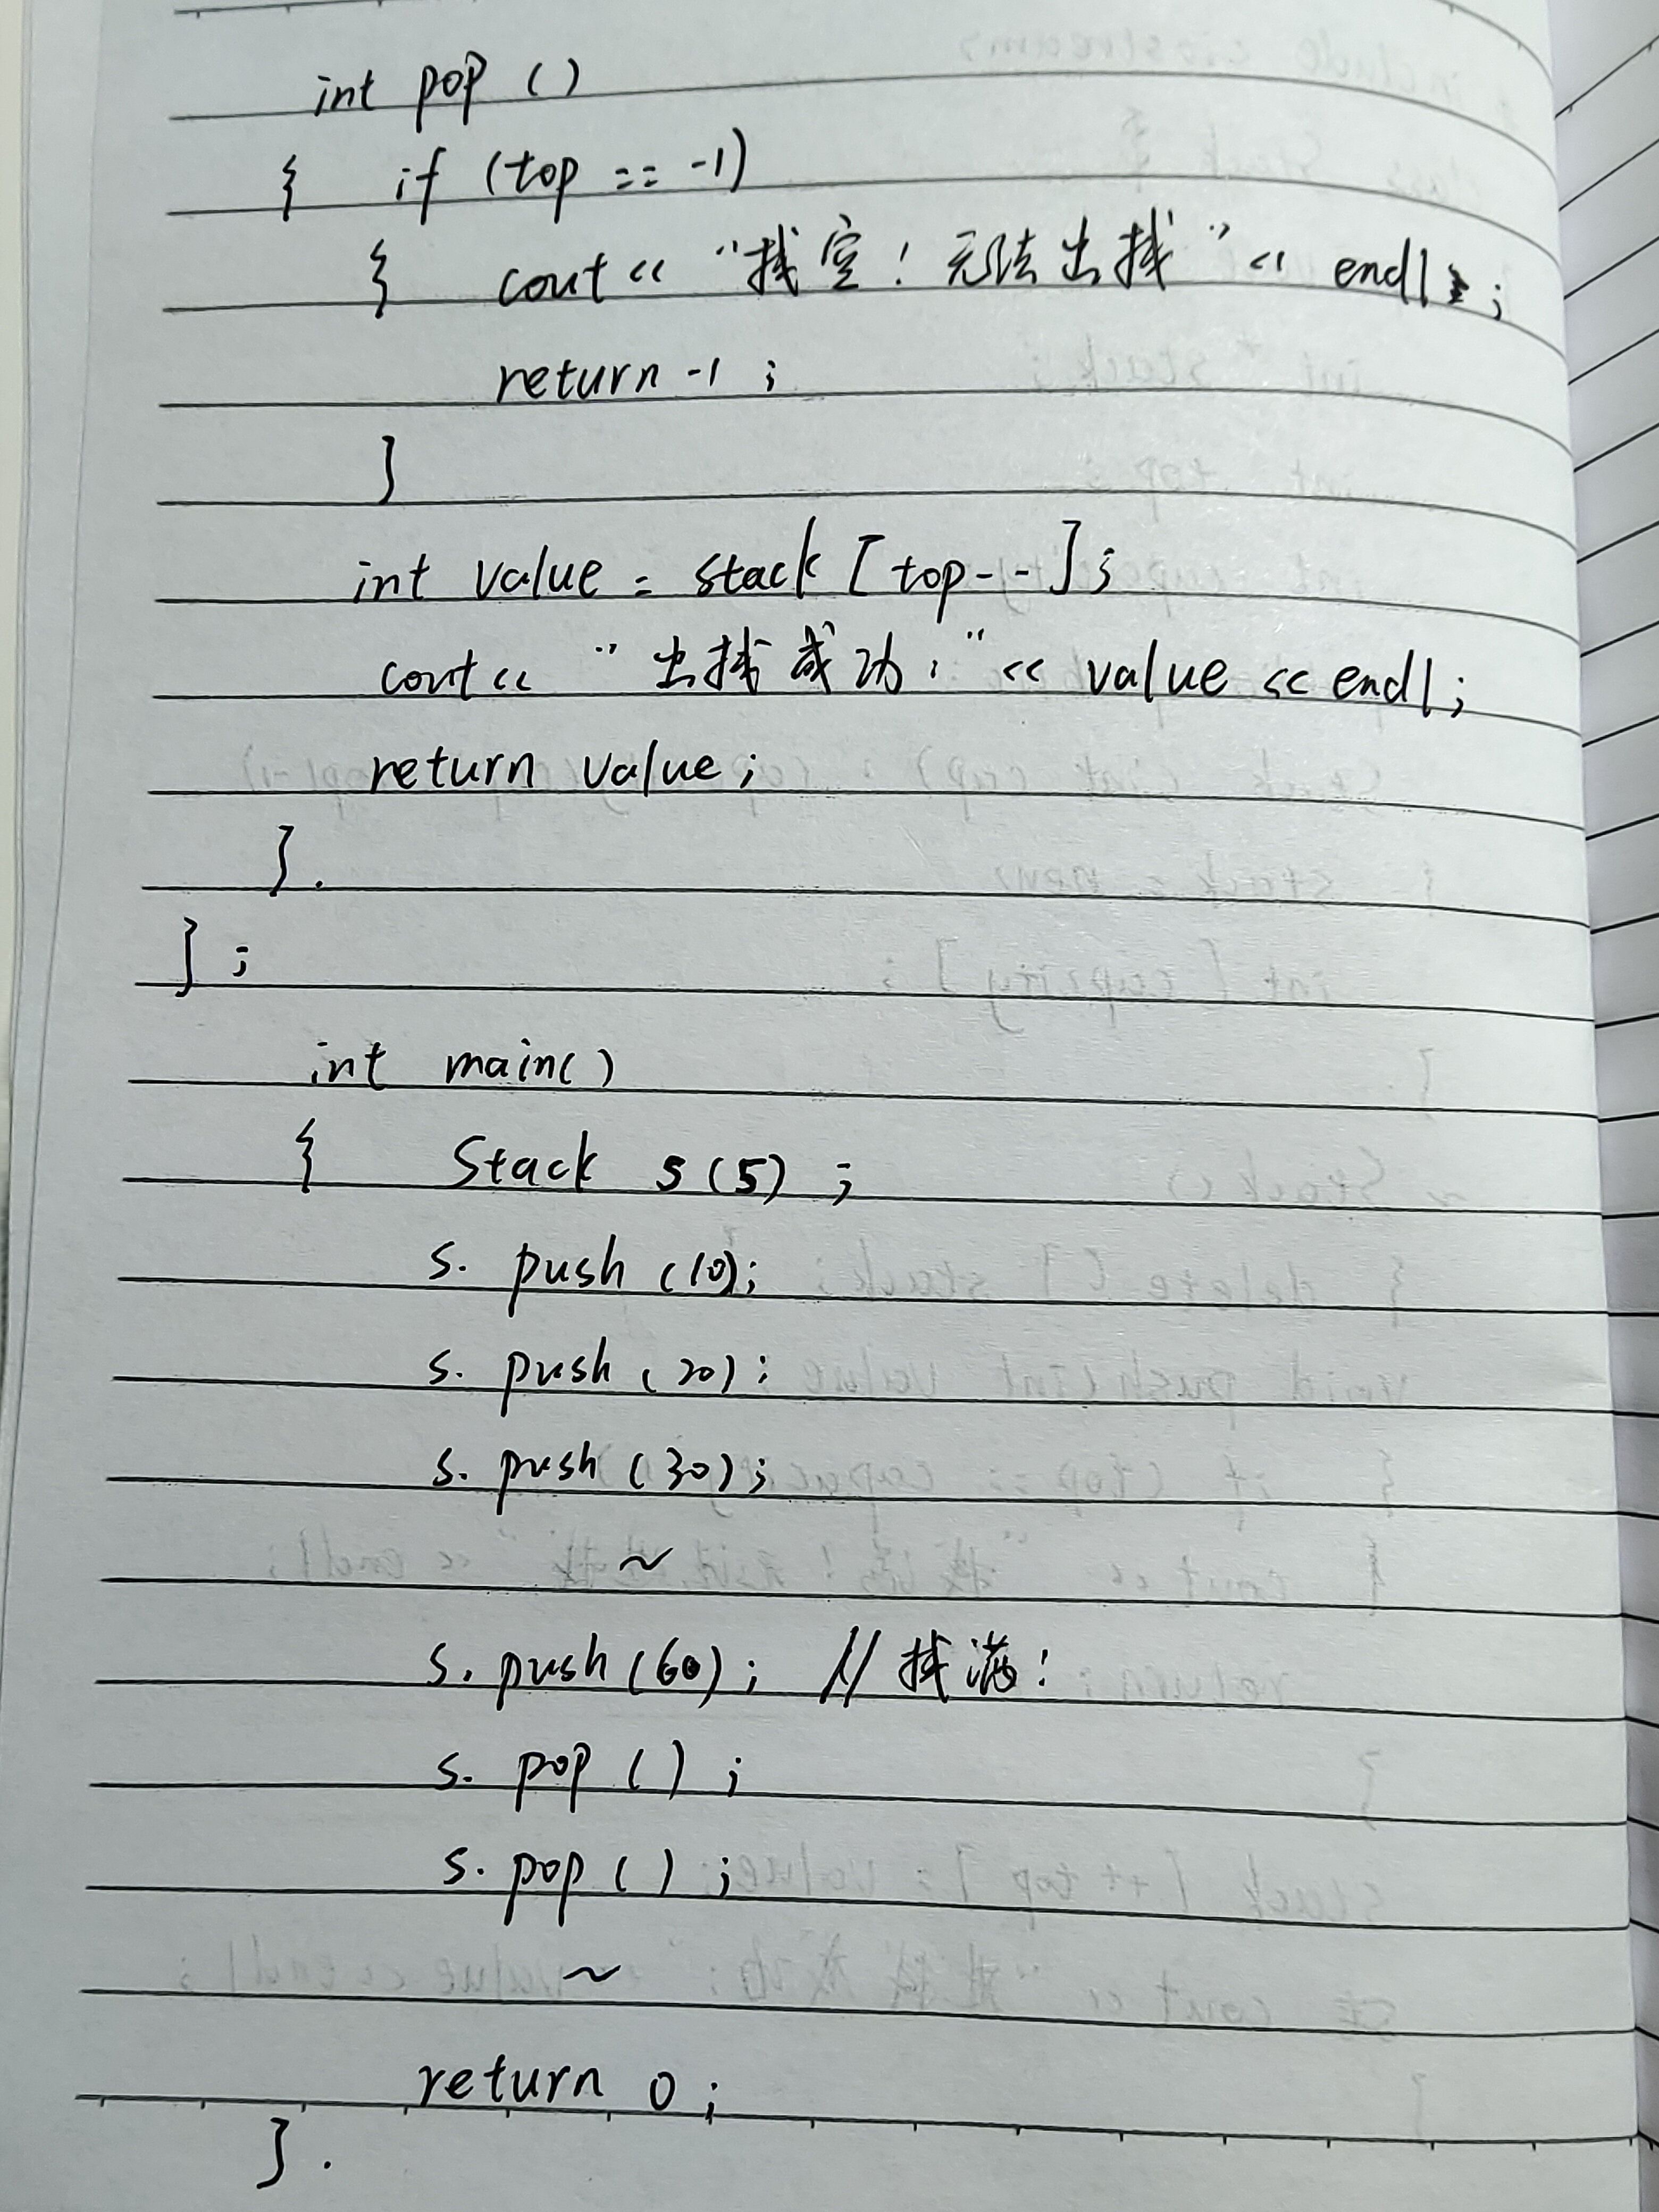 int pop ()
{ if (top == -1)
{ cout << "栈空！无法出栈" << endl ;
return -1 ;
}
int value = stack [top--] ;
cout << "出栈成功：" << value << endl ;
return value ;
}.
} ;
int main()
{ Stack s(5) ;
s. push (10);
s. push (20) ;
s. push (30) ;
~
s. push (60) ; // 栈满！
s. pop () ;
s. pop () ;
~
return 0 ;
}.